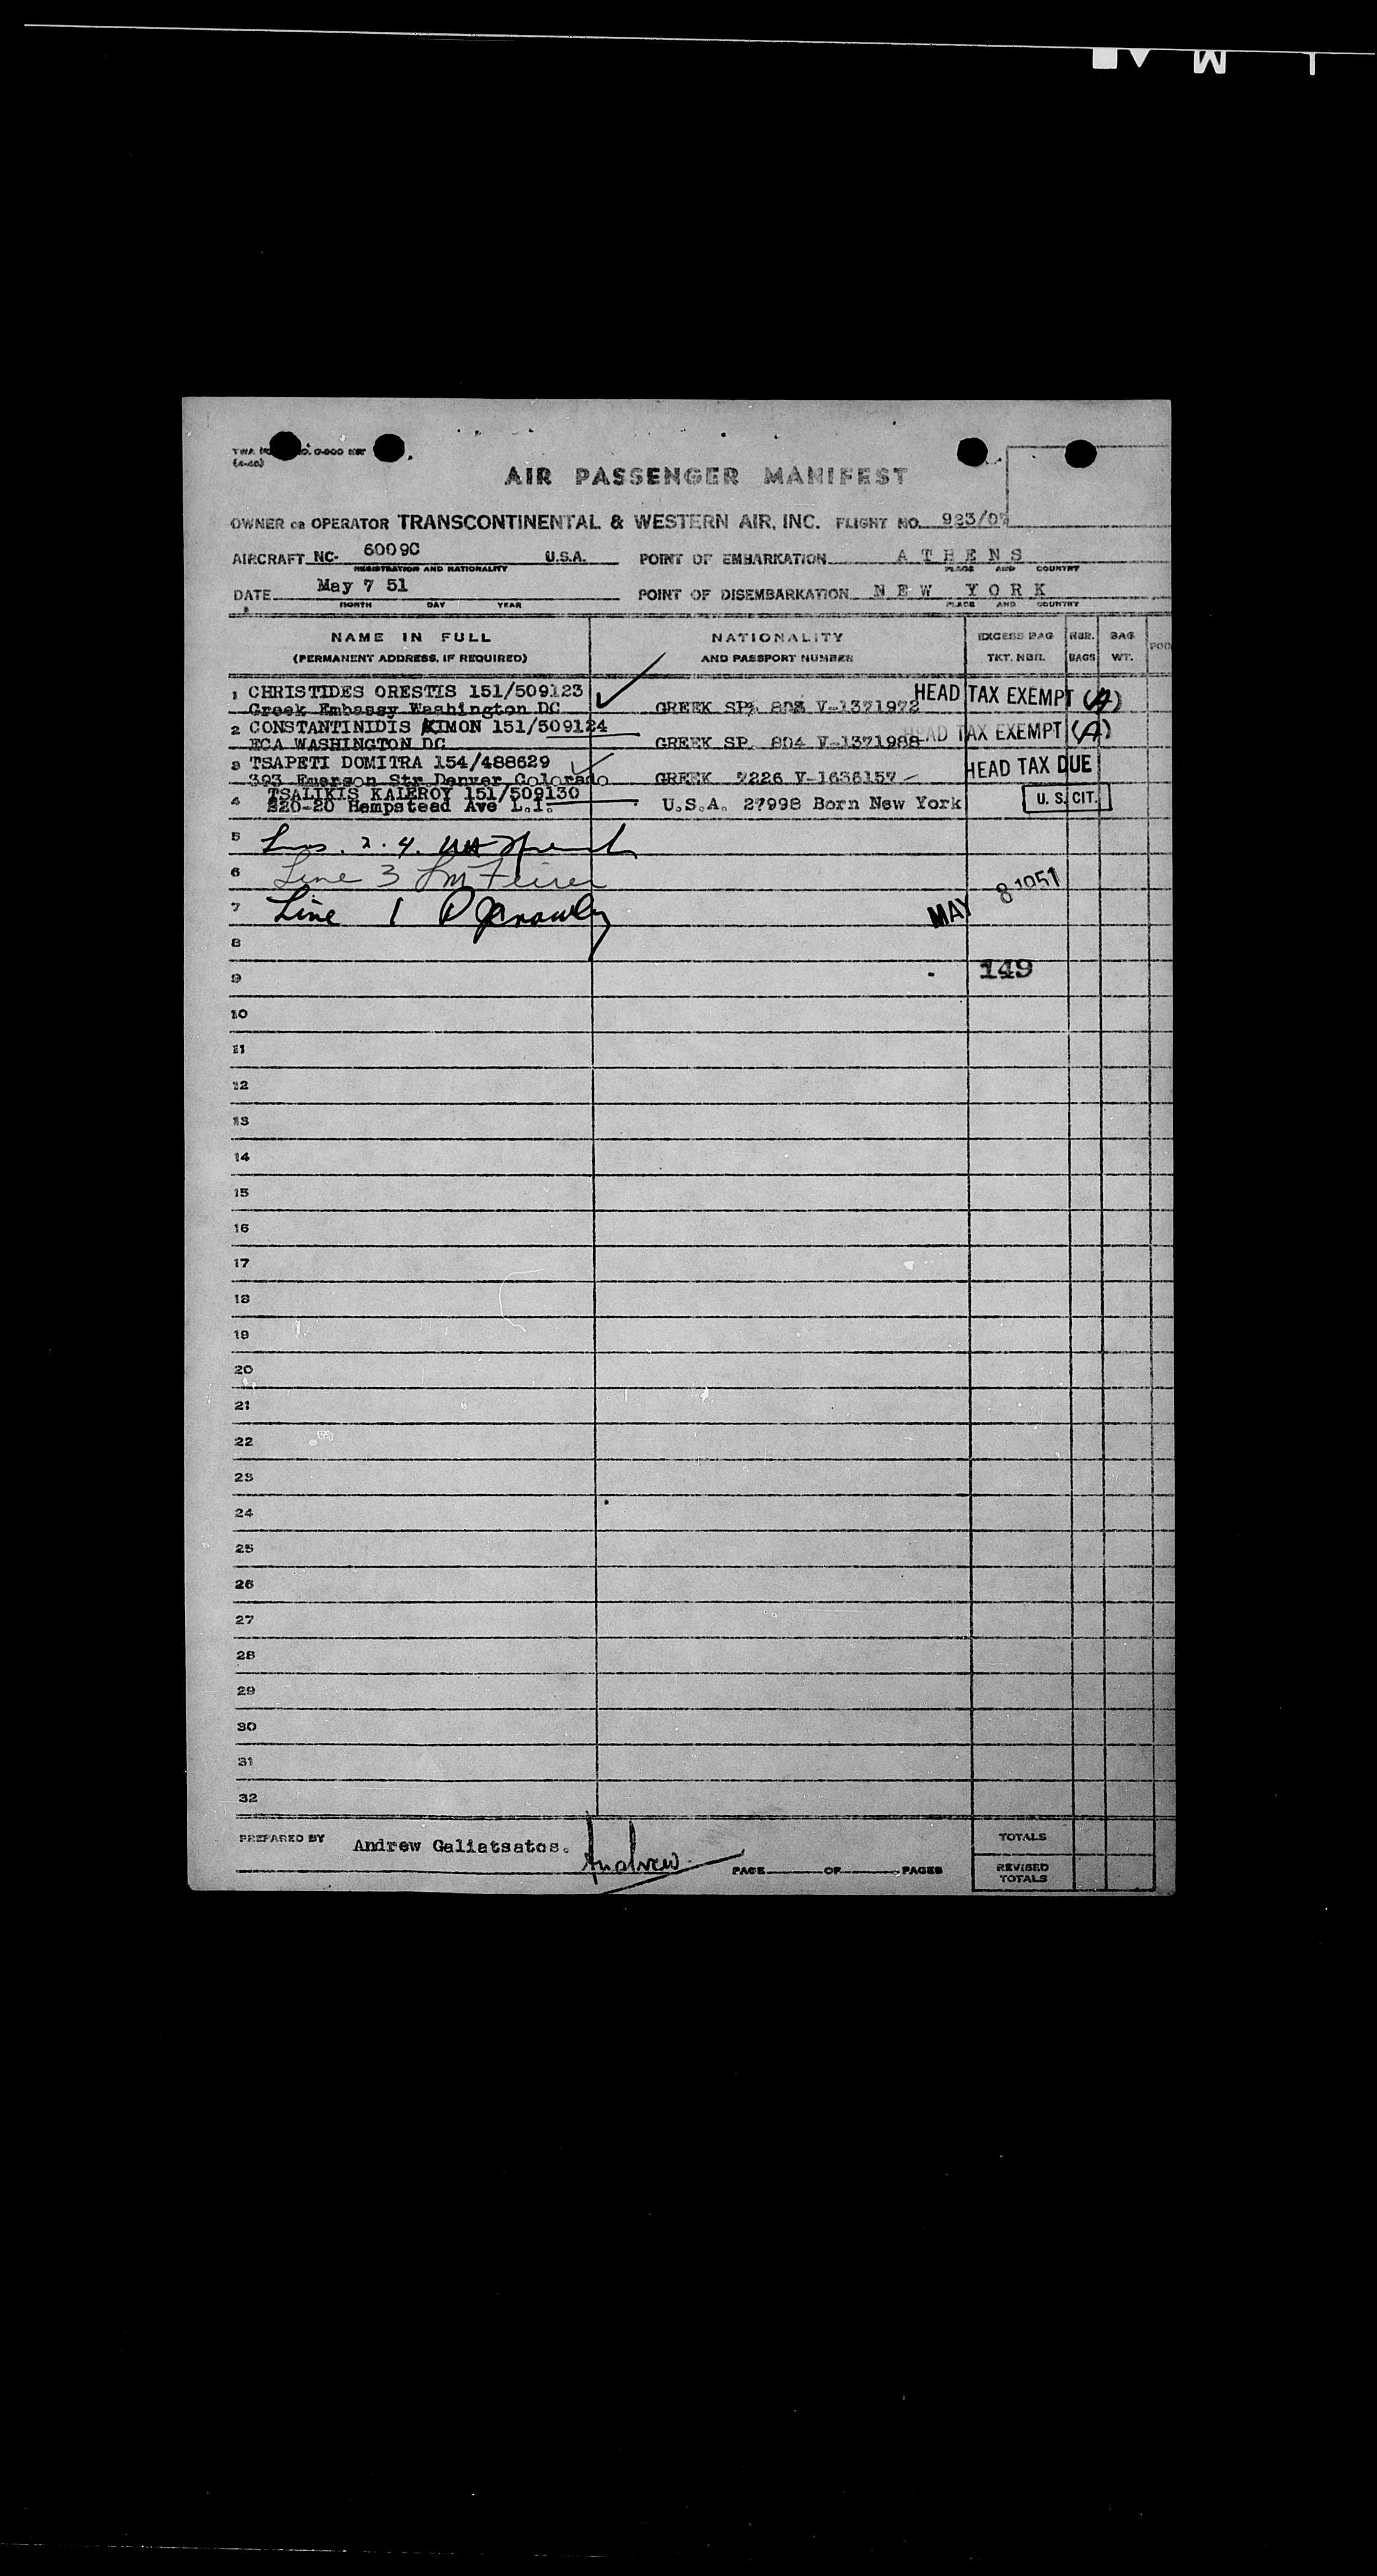 AIR PASSENGER MANIFEST
OWNER OR OPERATOR TRANSCONTINENTAL & WESTERN AIR, INC. FLIGHT NO. 923/07
AIRCRAFT NC- 6009C U.S.A. POINT OF EMBARKATION A T H E N S
REGISTRATION AND NATIONALITY PLACE AND COUNTRY
DATE May 7 51 POINT OF DISEMBARKATION N E W Y O R K
MONTH DAY YEAR PLACE AND COUNTRY
NAME IN FULL NATIONALITY EXCESS BAG NBR. BAG
(PERMANENT ADDRESS, IF REQUIRED) AND PASSPORT NUMBER TKT. NBR. BAGS WT.
1 CHRISTIDES ORESTIS 151/509123 HEAD TAX EXEMPT (A)
Greek Embassy Washington DC GREEK SP. 803 V-1371972
2 CONSTANTINIDIS KIMON 151/509124 HEAD TAX EXEMPT (A)
ECA WASHINGTON DC GREEK SP. 804 V-1371988
3 TSAPETI DOMITRA 154/488629 HEAD TAX DUE
393 Emerson Str Denver Colorado GREEK 2226 V-1636157
TSALIKIS KALEROY 151/509130
4 220-20 Hempstead Ave L.I. U.S.A. 27998 Born New York U. S. CIT.
5 2. 4.
6 Line 3
7 Line 1 MAY 8 1951
8
9 149
10
11
12
13
14
15
16
17
18
19
20
21
22
23
24
25
26
27
28
29
30
31
32
PREPARED BY Andrew Galiatsatos. Andrew PAGE OF PAGES
TOTALS
REVISED
TOTALS